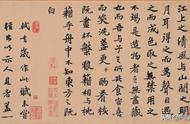 江上之清風與山間之明
月耳得之而為聲目遇之而
成色取之無禁用之不
竭是造物者之無盡藏也
而吾與子之所共食客喜
而笑洗盞更酌肴核
既盡杯盤狼藉相與枕
藉乎舟中不知東方既
白
軾去歲作此賦未嘗
輕出以示人見者蓋一